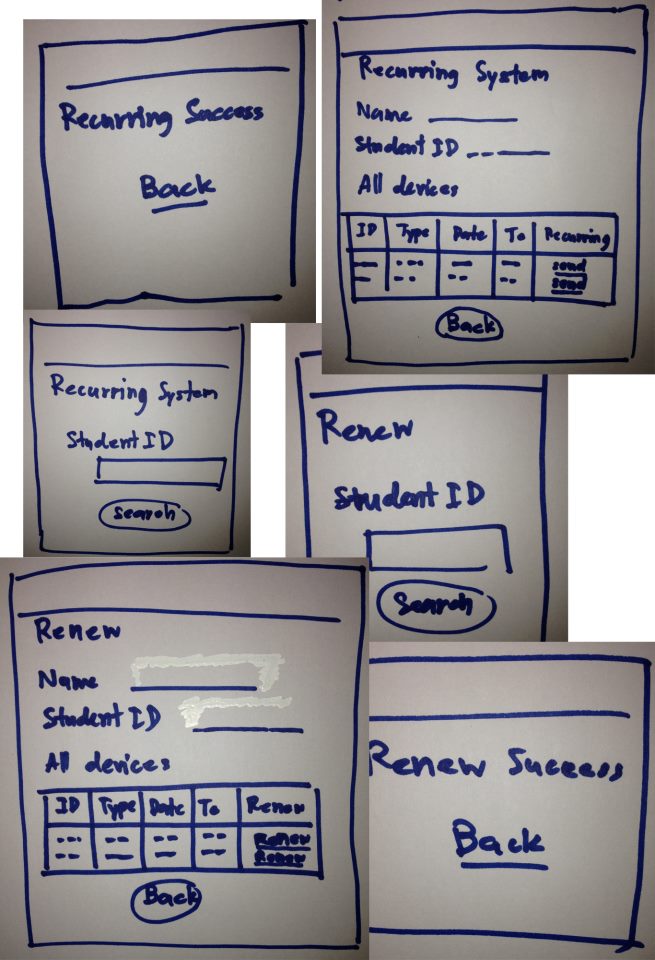 Recurring Success
Back
Recurring System
Name
Student ID
All devices
ID Type Date To Recurring
send
send
Back
Recurring System
Student ID
Search
Renew
Student ID
Search
Renew
Name
Student ID
All devices
ID Type Date To Renew
Renew
Renew
Back
Renew Success
Back